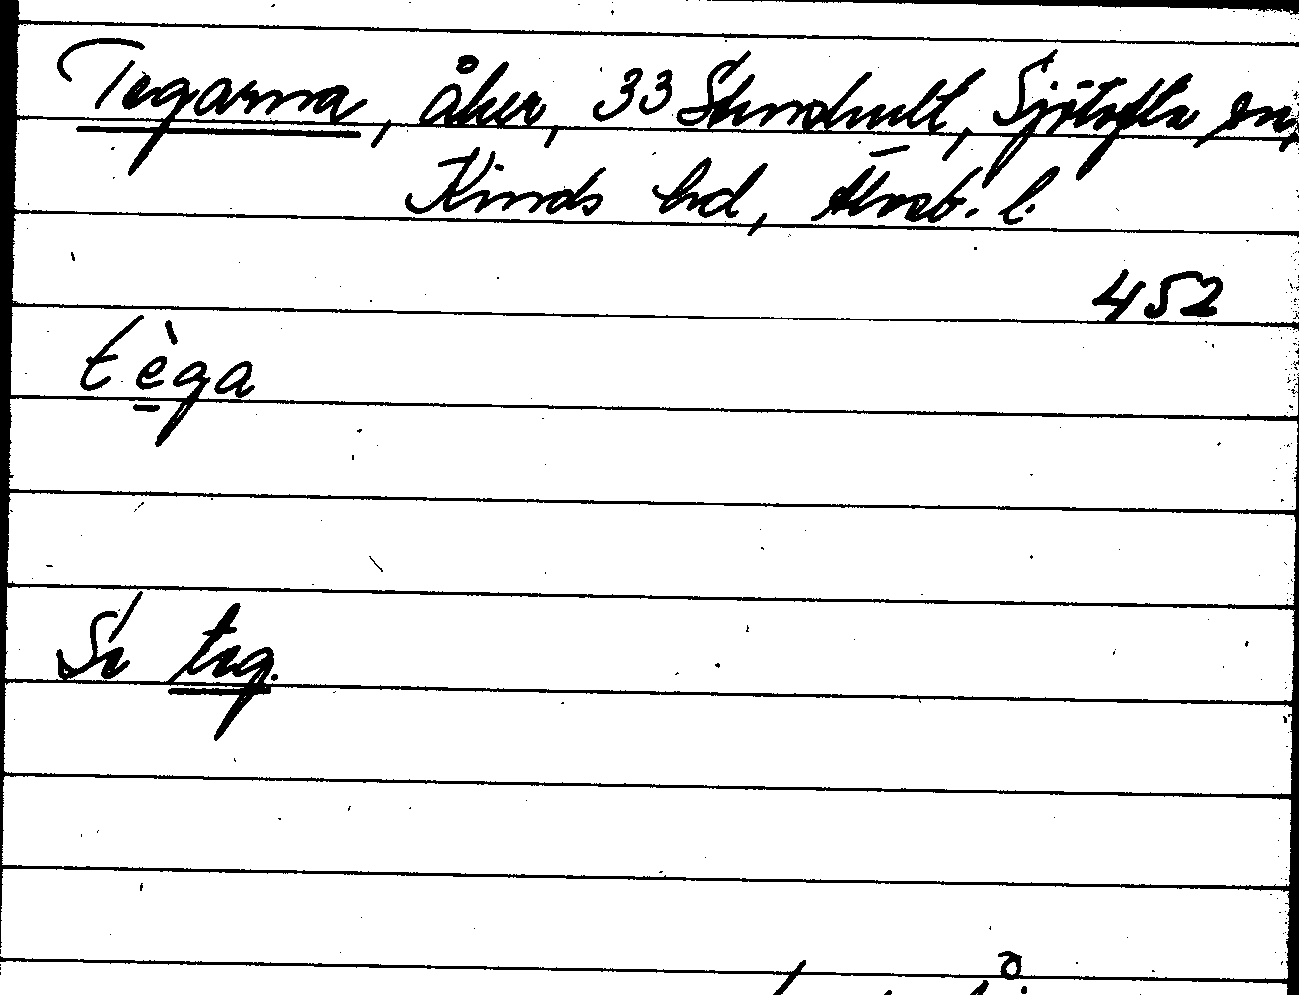 Tegarna, åker, 33 Skinshult, Sjötofta sn,
Kinds hd, Älvsb. l.
452
tèga
Se teg.